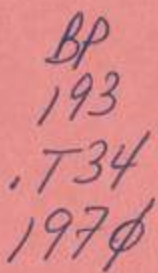 BP
193
.T34
1970